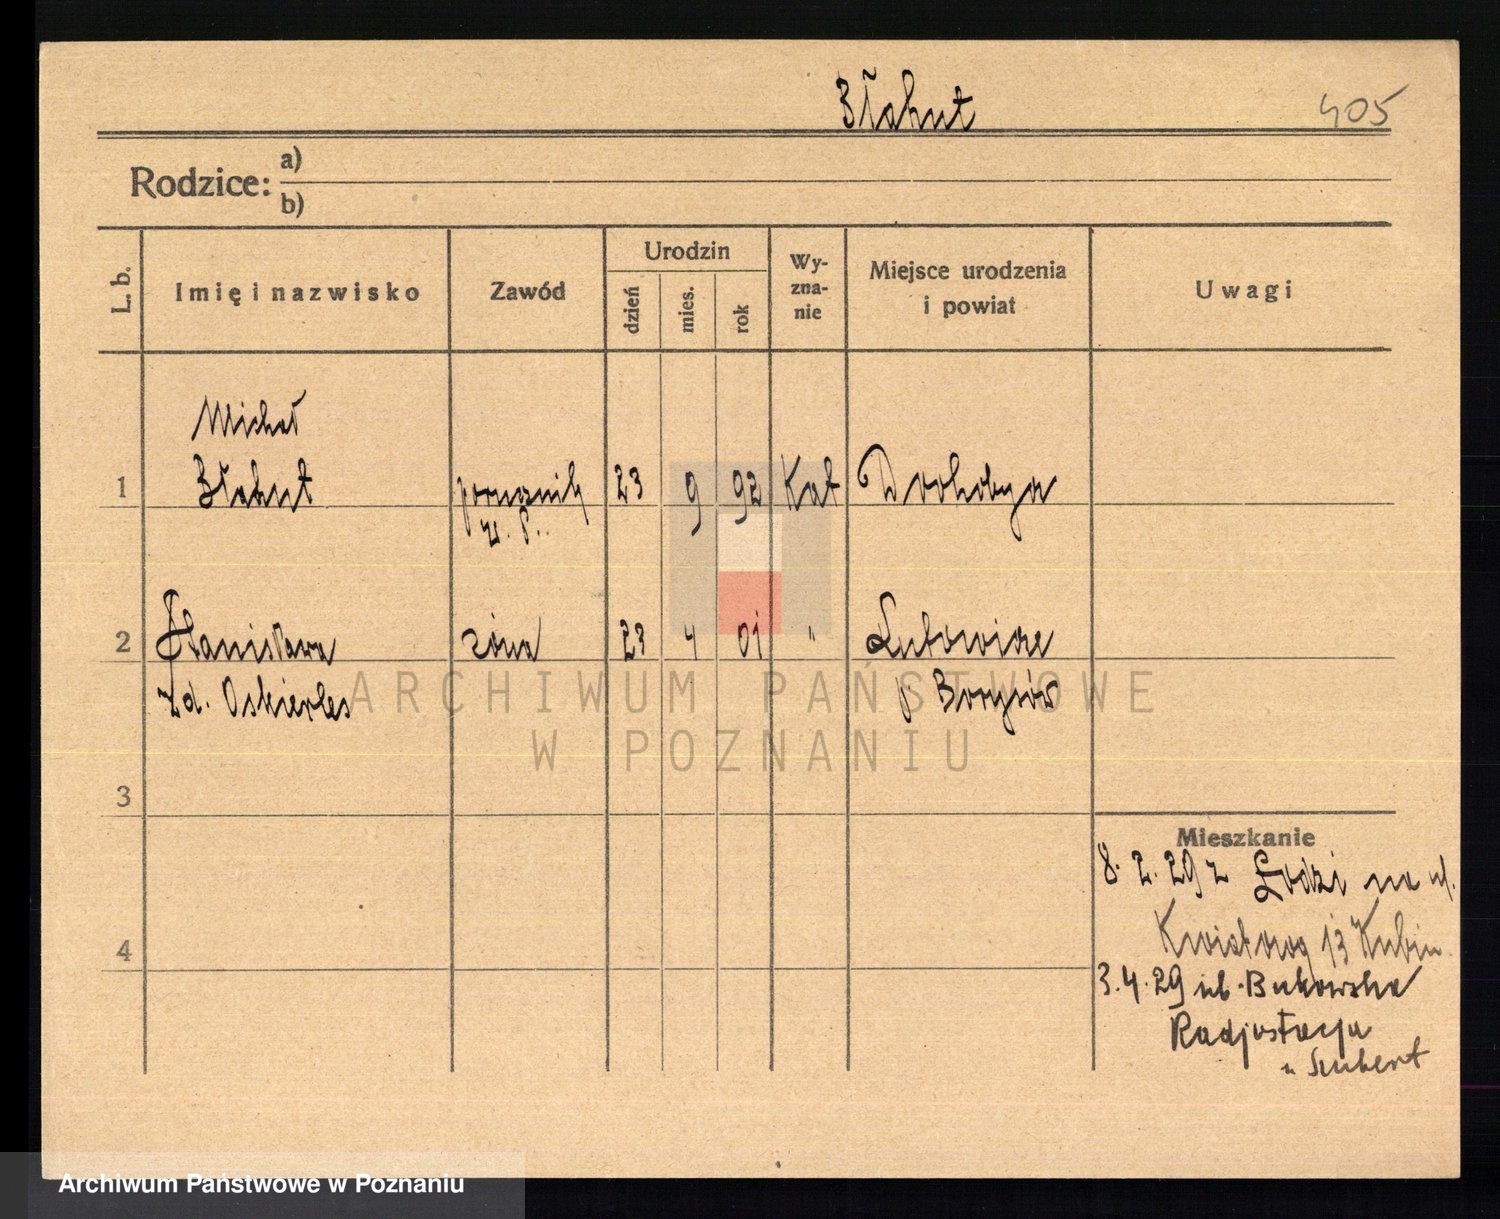 Błahut
405
Rodzice: a)
b)
L. b.
Imię i nazwisko
Zawód
Urodzin
dzień
mies.
rok
Wy-
zna-
nie
Miejsce urodzenia
i powiat
Uwagi
Michał
1 Błahut 23 9 92 Kat Drohobycz
2 Stanisława żona 23 4 01 "
zd.
p Borysów
3
Mieszkanie
8. 2. 29 z Łodzi na ul.
4
Kwiatową 13
3. 4. 29 ul. Bukowska
Radjostacja
ARCHIWUM PAŃSTWOWE
W POZNANIU
Archiwum Państwowe w Poznaniu